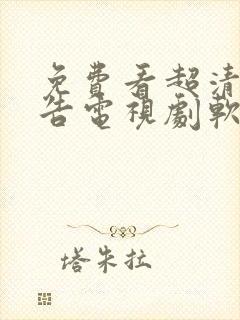 免費看超清
告電視劇軟
塔朱拉